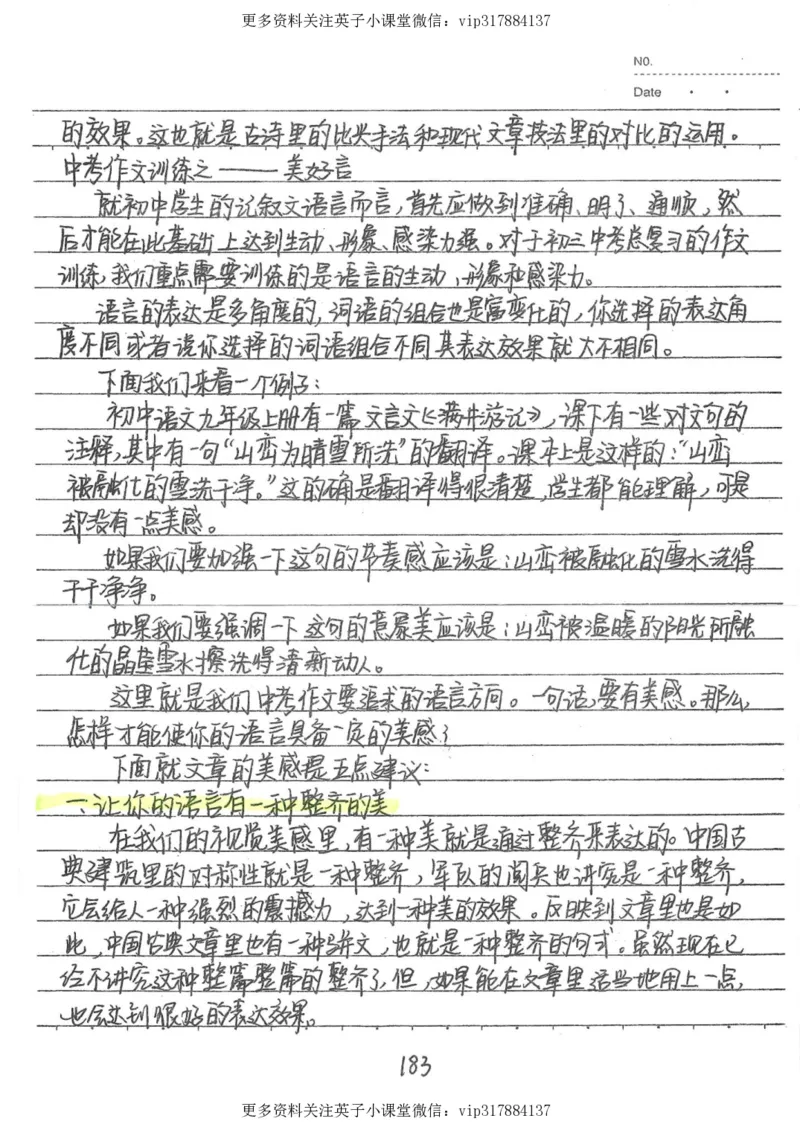 更多资料关注英子小课堂微信：vip317884137
NO.
Date
的效果。这也就是古诗里的比兴手法和现代文章技法里的对比的运用。
中考作文训练之——美好言
就初中学生的记叙文语言而言，首先应做到准确、明了、通顺，然
后才能在此基础上达到生动、形象、感染力强。对于初三中考总复习的作文
训练，我们重点需要训练的是语言的生动、形象和感染力。
语言的表达是多角度的，词语的组合也是富变化的，你选择的表达角
度不同或者说你选择的词语组合不同其表达效果就大不相同。
下面我们来看一个例子：
初中语文九年级上册有一篇文言文《满井游记》，课下有一些对文句的
注释，其中有一句“山峦为晴雪所洗”的翻译。课本上是这样的：“山峦
被融化的雪洗干净。”这的确是翻译得很清楚，学生都能理解，可是
却没有一点美感。
如果我们要加强一下这句的节奏感应该是：山峦被融化的雪水洗得
干干净净。
如果我们要强调一下这句的意象美应该是：山峦被温暖的阳光所融
化的晶莹雪水擦洗得清新动人。
这里就是我们中考作文要追求的语言方向。一句话，要有美感。那么，
怎样才能使你的语言具备一定的美感？
下面就文章的美感提五点建议：
一、让你的语言有一种整齐的美
在我们的视觉美感里，有一种美就是通过整齐来表达的。中国古
典建筑里的对称性就是一种整齐，军队的阅兵也讲究是一种整齐，
它会给人一种强烈的震撼力，达到一种美的效果。反映到文章里也是如
此，中国古典文章里也有一种骈文，也就是一种整齐的句式。虽然现在已
经不讲究这种整篇整篇的整齐了，但，如果能在文章里适当地用上一点，
也会达到很好的表达效果。
183
更多资料关注英子小课堂微信：vip317884137